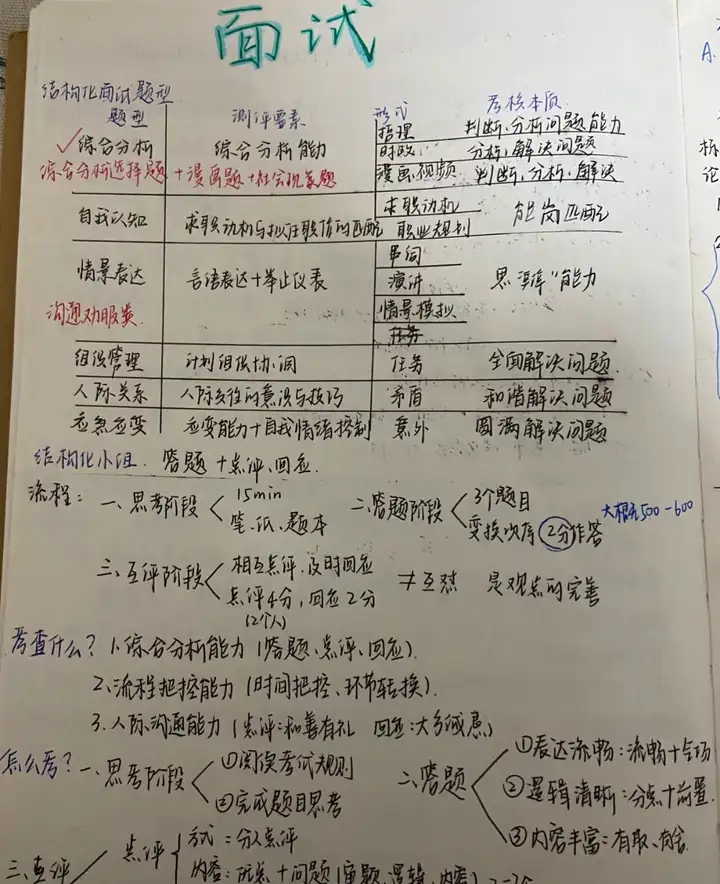 面试
结构化面试题型
题型 测评要素 形式 考核本质
✓综合分析 综合分析能力 哲理 判断、分析问题能力
时政 分析、解决问题
综合分析选择题 + 漫画题 + 社会现象题 漫画、视频 判断、分析、解决
自我认知 求职动机与拟任职位的匹配 求职动机 能岗匹配
职业规划
情景表达 言语表达+举止仪表 串词
演讲 思 "能力
沟通劝服类 情景模拟
任务
组织管理 计划组织协调 任务 全面解决问题
人际关系 人际交往的意识与技巧 矛盾 和谐解决问题
应急应变 应变能力+自我情绪控制 意外 圆满解决问题
结构化小组. 答题 + 点评、回应.
流程: 一、思考阶段 15min 二、答题阶段 3个题目
笔、纸、题本 变换次序 2分作答 大概500-600
三、互评阶段 相互点评、及时回应 ≠互怼 是观点的完善
点评4分,回应2分
(2个人)
考查什么? 1.综合分析能力(答题、点评、回应).
2.流程把控能力(时间把控、环节转换).
3.人际沟通能力(点评:和善有礼 回应:大方诚恳)
怎么考? 一、思考阶段 ①阅读考试规则 二、答题 ①表达流畅:流畅+气场
②完成题目思考 ②逻辑清晰:分点+前置.
③内容丰富:有取、有舍.
三、互评 点评 方式:分人点评
内容:优点+问题(审题、逻辑、内容)2-3个
A.